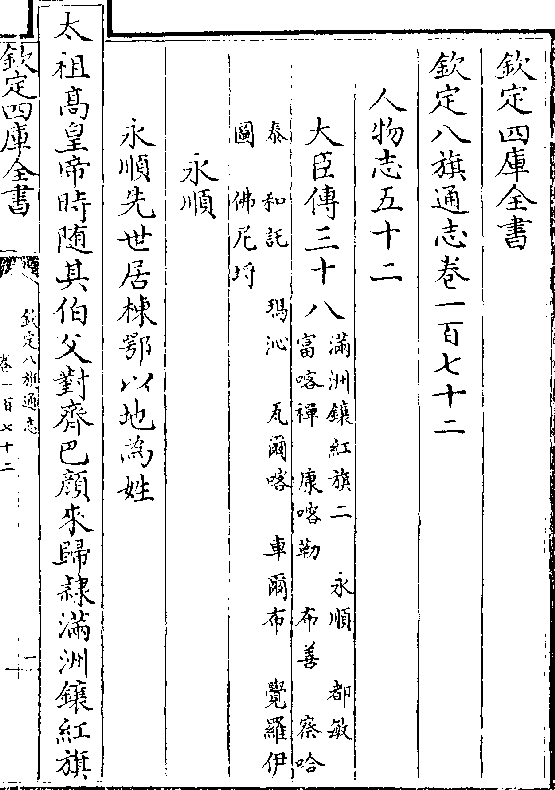 欽定四庫全書
欽定八旗通志卷一百七十二
人物志五十二
大臣傳三十八
滿洲鑲紅旗二 永順 都敏
富喀禪 康喀勒 布善 察哈
泰 和託 瑪沁 瓦爾喀 車爾布 覺羅伊
圖 佛尼埒
永順
永順先世居棟鄂以地為姓
太祖高皇帝時随其伯父對齊巴顔來歸隷滿洲鑲紅旗
欽定四庫全書
欽定八旗通志
卷一百七十二
一